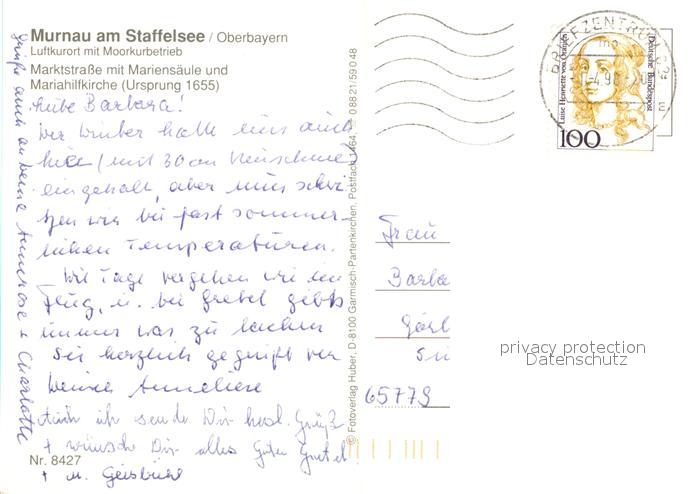 Murnau am Staffelsee / Oberbayern
Luftkurort mit Moorkurbetrieb
Marktstraße mit Mariensäule und
Mariahilfkirche (Ursprung 1655)
Liebe Barbara!
Der Winter hatte uns auch
hier (mit 30 cm Neuschnee)
eingeholt, aber nun schwi-
tzen wir bei fast sommer-
lichen Temperaturen.
Die Tage vergehen wie im
Flug, u. bei Gretel gibts
immer was zu lachen
Sei herzlich gegrüßt von
Deiner Anneliese
Auch ich sende Dir herzl. Grüße
+ wünsche Dir alles Gute Gretel
+ M. Geisbühl
Grüße auch an Deine Annerose + Charlotte
Nr. 8427
© Fotoverlag Huber, D-8100 Garmisch-Partenkirchen, Postfach 1464, 0 88 21/5 90 48
BRIEFZENTRUM
Luise Henriette von Oranien
Deutsche Bundespost
100
Frau
Barba
65779
privacy protection
Datenschutz